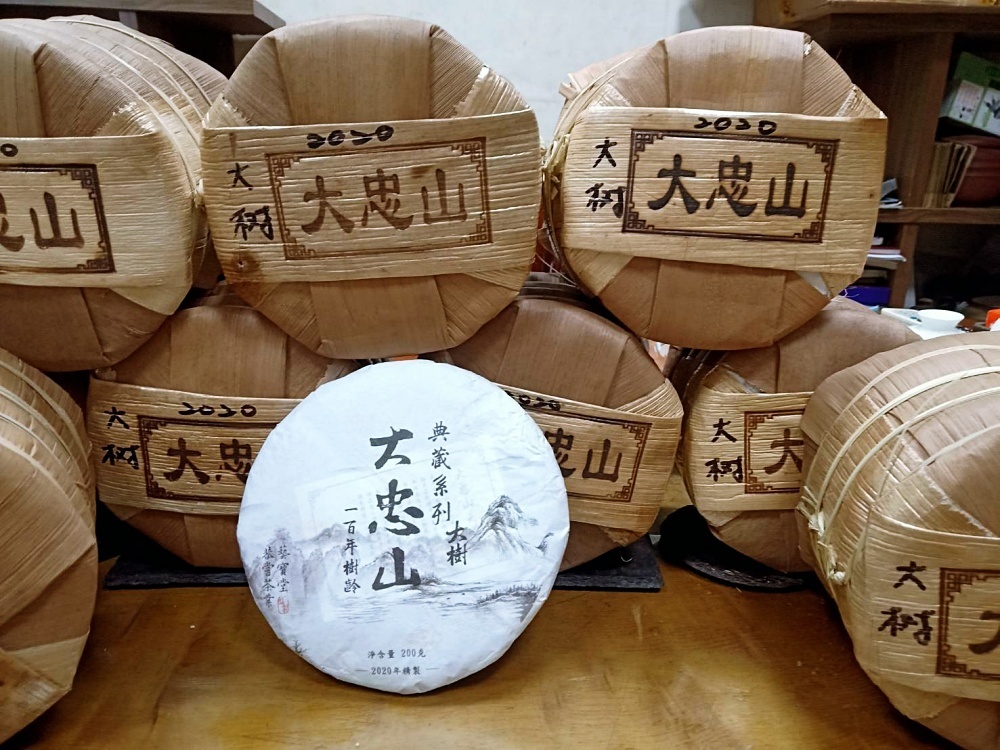 2020
大树
大忠山
2020
大树
大忠山
忠山
2020
大树
大忠
2020
忠山
大树
大
大树
典藏系列
大樹
大忠山
一百年樹齡
藝寶堂
淨含量 200克
2020年精製